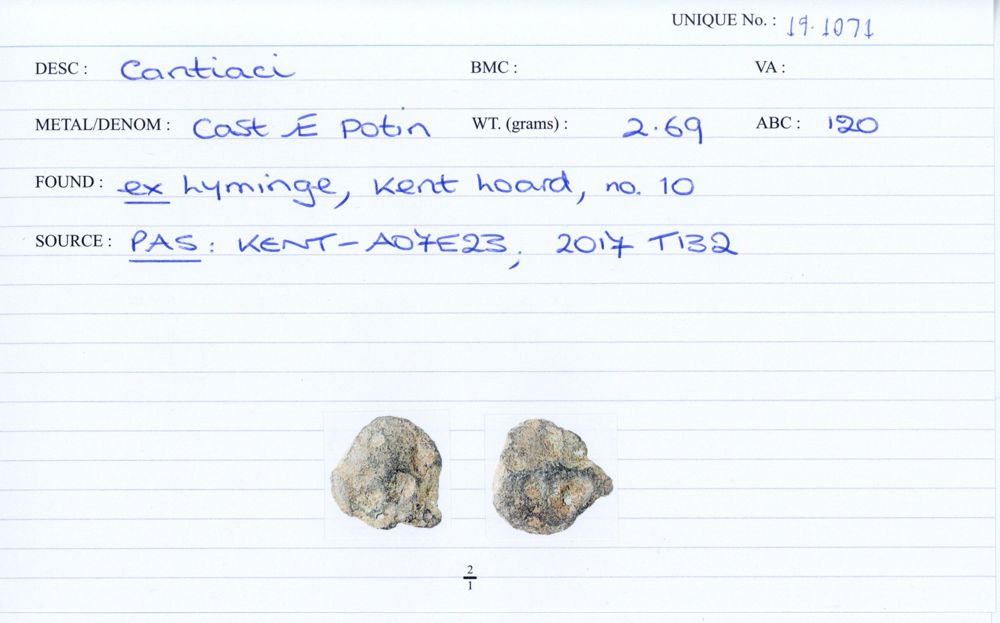 UNIQUE No. : 19.1071
DESC : Cantiaci BMC : VA :
METAL/DENOM : Cast Æ Potin WT. (grams) : 2.69 ABC : 120
FOUND : ex Lyminge, Kent hoard, no. 10
SOURCE : PAS: KENT-A07E23, 2017 T132
2
1